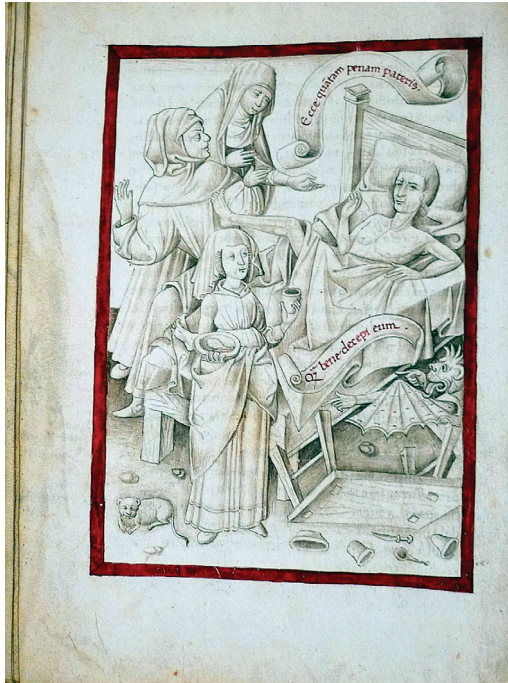 Ecce quātam penam pateris.
Qm̄ bene decepi eum.